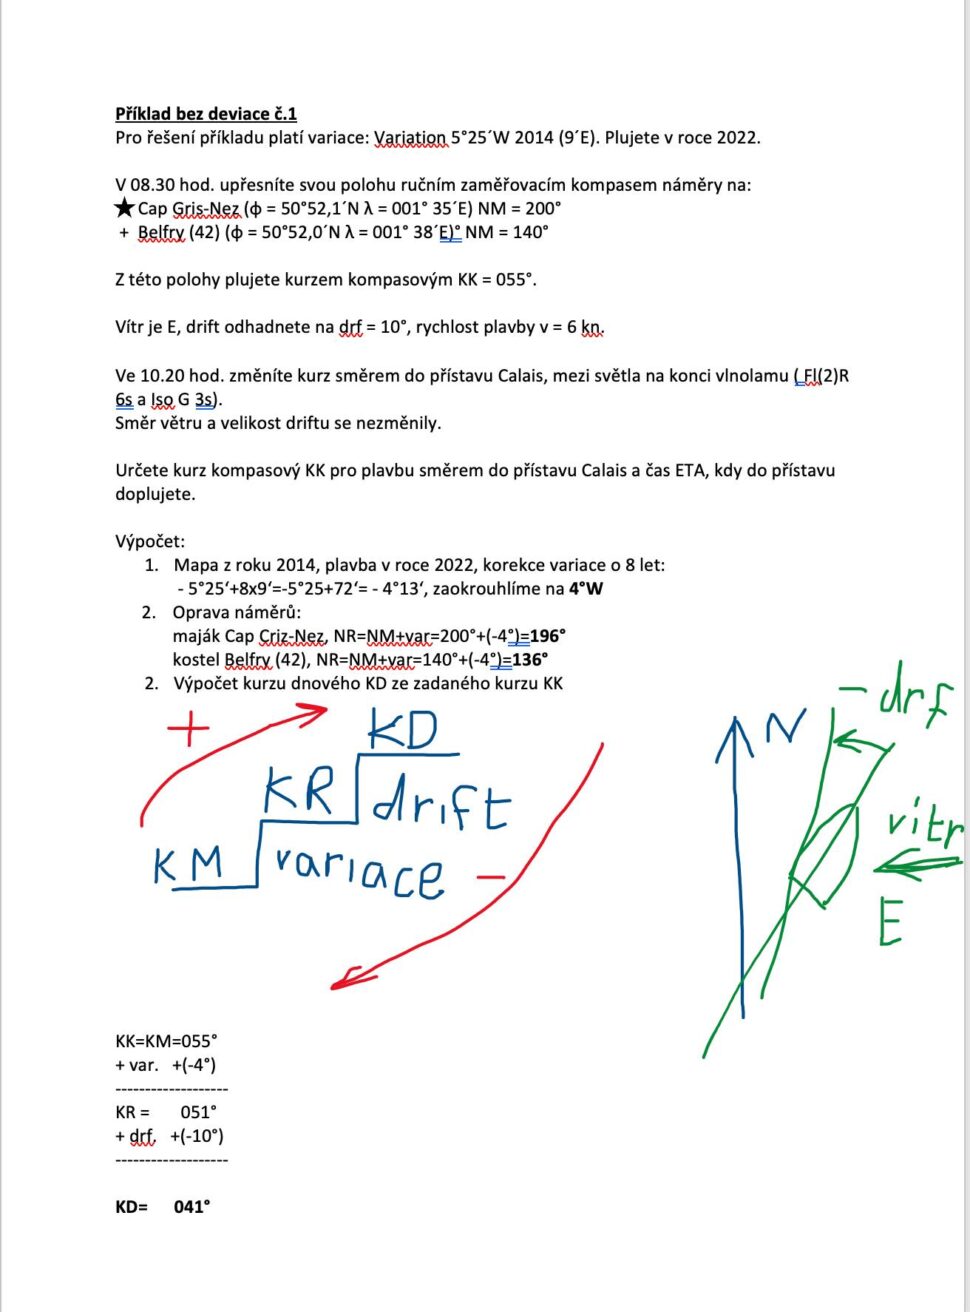 Příklad bez deviace č.1
Pro řešení příkladu platí variace: Variation 5°25´W 2014 (9´E). Plujete v roce 2022.
V 08.30 hod. upřesníte svou polohu ručním zaměřovacím kompasem náměry na:
★ Cap Gris-Nez (ф = 50°52,1´N λ = 001° 35´E) NM = 200°
+ Belfry (42) (ф = 50°52,0´N λ = 001° 38´E)° NM = 140°
Z této polohy plujete kurzem kompasovým KK = 055°.
Vítr je E, drift odhadnete na drf = 10°, rychlost plavby v = 6 kn.
Ve 10.20 hod. změníte kurz směrem do přístavu Calais, mezi světla na konci vlnolamu ( Fl(2)R
6s a Iso G 3s).
Směr větru a velikost driftu se nezměnily.
Určete kurz kompasový KK pro plavbu směrem do přístavu Calais a čas ETA, kdy do přístavu
doplujete.
Výpočet:
1. Mapa z roku 2014, plavba v roce 2022, korekce variace o 8 let:
- 5°25‘+8x9‘=-5°25+72‘= - 4°13‘, zaokrouhlíme na 4°W
2. Oprava náměrů:
maják Cap Criz-Nez, NR=NM+var=200°+(-4°)=196°
kostel Belfry (42), NR=NM+var=140°+(-4°)=136°
2. Výpočet kurzu dnového KD ze zadaného kurzu KK
+
KD
KR drift
KM variace -
N
- drf
vítr
E
KK=KM=055°
+ var. +(-4°)
-------------------
KR = 051°
+ drf. +(-10°)
-------------------
KD= 041°